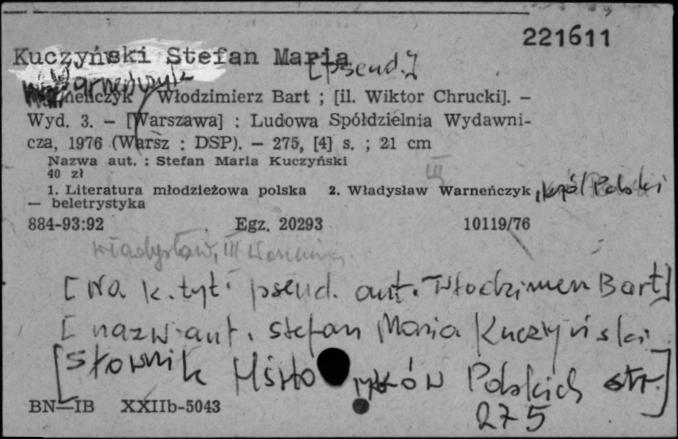 221611
Kuczyński Stefan Maria [pseud.]
Warneńczyk / Włodzimierz Bart ; [il. Wiktor Chrucki]. –
Wyd. 3. – [Warszawa] : Ludowa Spółdzielnia Wydawni-
cza, 1976 (Warsz : DSP). – 275, [4] s. ; 21 cm
Nazwa aut. : Stefan Maria Kuczyński
40 zł
III
1. Literatura młodzieżowa polska 2. Władysław Warneńczyk, król Polski
— beletrystyka
884-93:92 Egz. 20293 10119/76
Władysław, III
[Na k. tyt. pseud. aut. Włodzimierz Bart]
[nazw. aut. Stefan Maria Kuczyński
[Słownik Histo ków Polskich str.]
275
BN—IB XXIIb-5043